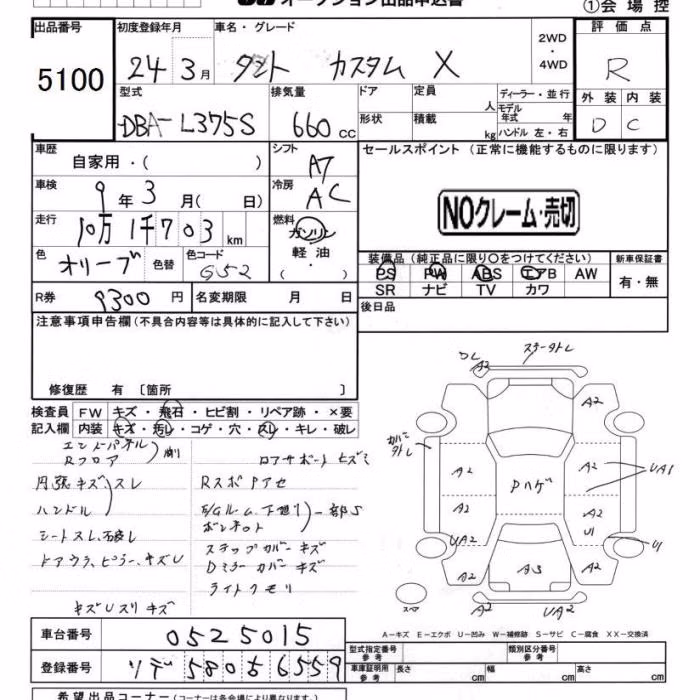 オークション出品申込書
①会場控
出品番号
5100
初度登録年月
24年3月
車名・グレード
タント カスタム X
2WD・4WD
評価点
R
外装 内装
D C
型式
DBA-L375S
排気量
660cc
ドア
形状
定員 人
積載 kg
ディーラー・並行
モデル年式 年
ハンドル 左・右
車歴
自家用・( )
シフト
AT
セールスポイント(正常に機能するものに限ります)
NOクレーム・売切
車検
9年3月( 日)
冷房
AC
走行
10万1千703km
燃料
ガソリン
軽油
・( )
色
オリーブ
色替
色コード
G52
装備品(純正品に限り○をつけてください)
新車保証書
PS PW ABS エアB AW
SR ナビ TV カワ
有・無
R券
9300円
名変期限 月 日
後日品
注意事項申告欄(不具合内容等は具体的に記入して下さい)
修復歴 有〔箇所 〕
検査員 FW キズ・飛石・ヒビ割・リペア跡・×要
記入欄 内装 キズ・汚レ・コゲ・穴・スレ・キレ・破レ
エンドパネル
Rフロア
コアサポートヒズミ
内張キズ スレ
RスポPアセ
ハンドル
E/Gルーム、下廻り 一部S
ボンネット
シートスレ
ステップカバーキズ
ドアウラ、ピラー、キズU
Dミラーカバーキズ
ライトクモリ
キズUスリキズ
A2
A2
カバータトレ
A2
Pハゲ
A2
UA1
A2
A2
U1
UA2
U1
A2
A3
A2
スペア
A2
UA2
A-キズ E-エクボ U-凹み W-補修跡 S-サビ C-腐食 XX-交換済
車台番号
0525015
登録番号
ソデ58056559
型式指定番号 参考
類別区分番号 参考
車庫証明用 参考
長さ cm
幅 cm
高さ cm
希望出品コーナー(コーナーは各会場により異なります)